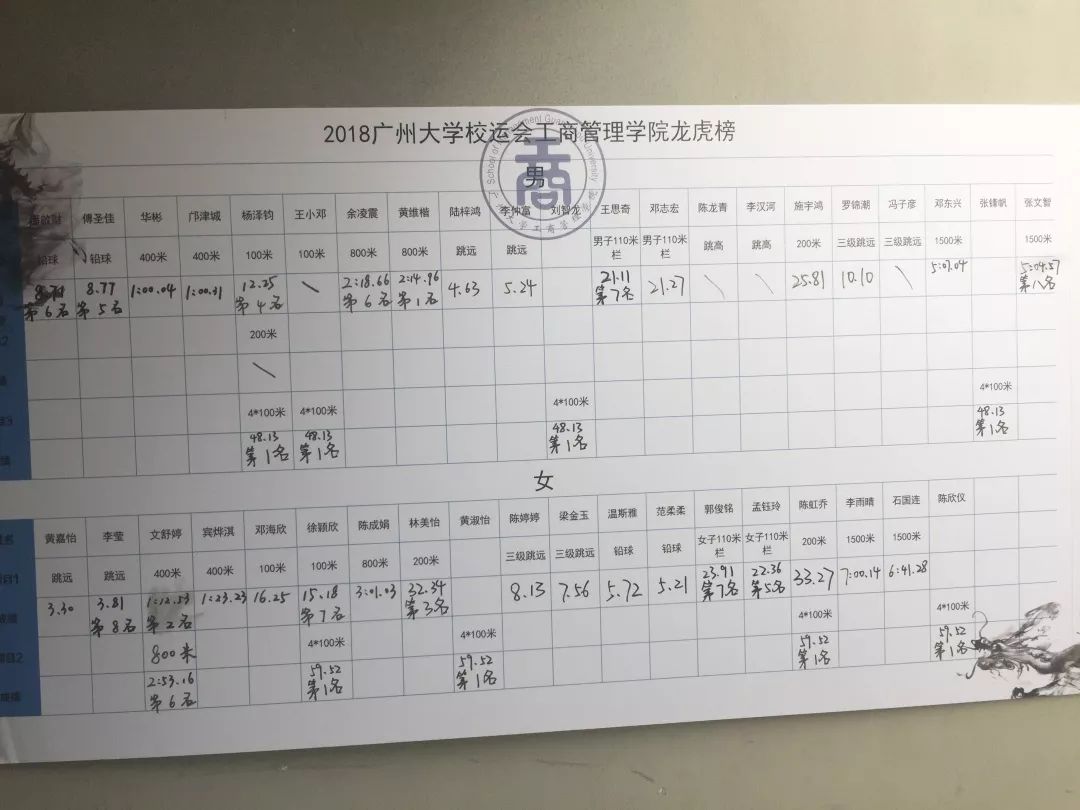 2018广州大学校运会工商管理学院龙虎榜
商
男
傅圣佳 华彬 邝津城 杨泽钧 王小邓 余凌震 黄维楷 陆梓鸿 李仲富 刘智龙 王思奇 邓志宏 陈龙青 李汉河 施宇鸿 罗锦潮 冯子彦 邓东兴 张锋帆 张文智
铅球 铅球 400米 400米 100米 100米 800米 800米 跳远 跳远 男子110米栏 男子110米栏 跳高 跳高 200米 三级跳远 三级跳远 1500米 1500米
8.77 1:00.04 1:00.31 12.25 \ 2:18.66 2:14.96 4.63 5.24 21.11 21.27 \ \ 25.81 10.10 \ 5:07.04 5:04.57
第6名 第5名 第4名 第6名 第1名 第7名 第八名
200米
\
4*100米 4*100米 4*100米 4*100米
48.13 48.13 48.13 48.13
第1名 第1名 第1名 第1名
女
黄嘉怡 李莹 文舒婷 宾烨淇 邓海欣 徐颖欣 陈成娟 林美怡 黄淑怡 陈婷婷 梁金玉 温斯雅 范柔柔 郭俊铭 孟钰玲 陈虹乔 李雨晴 石国连 陈欣仪
跳远 跳远 400米 400米 100米 100米 800米 200米 三级跳远 三级跳远 铅球 铅球 女子110米栏 女子110米栏 200米 1500米 1500米
3.30 3.81 1:12.53 1:23.23 16.25 15.18 3:01.03 32.34 8.13 7.56 5.72 5.21 23.91 22.36 33.27 7:00.14 6:41.28
第8名 第2名 第7名 第3名 第7名 第5名
800米 4*100米 4*100米 4*100米 4*100米
2:53.16 59.52 59.52 59.52 59.52
第6名 第1名 第1名 第1名 第1名